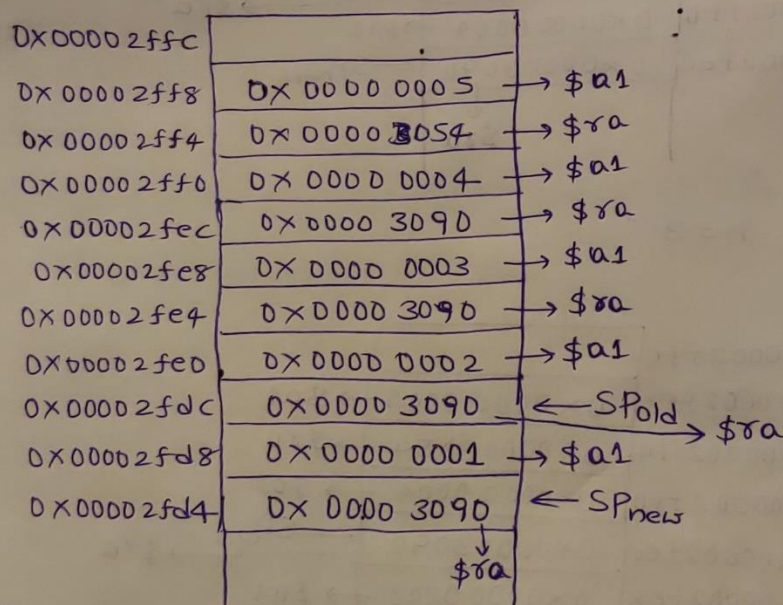 0x00002ffc
0x00002ff8 0x00000005 → $a1
0x00002ff4 0x00003054 → $ra
0x00002ff0 0x00000004 → $a1
0x00002fec 0x00003090 → $ra
0x00002fe8 0x00000003 → $a1
0x00002fe4 0x00003090 → $ra
0x00002fe0 0x00000002 → $a1
0x00002fdc 0x00003090 ← SPold → $ra
0x00002fd8 0x00000001 → $a1
0x00002fd4 0x00003090 ← SPnew
$ra